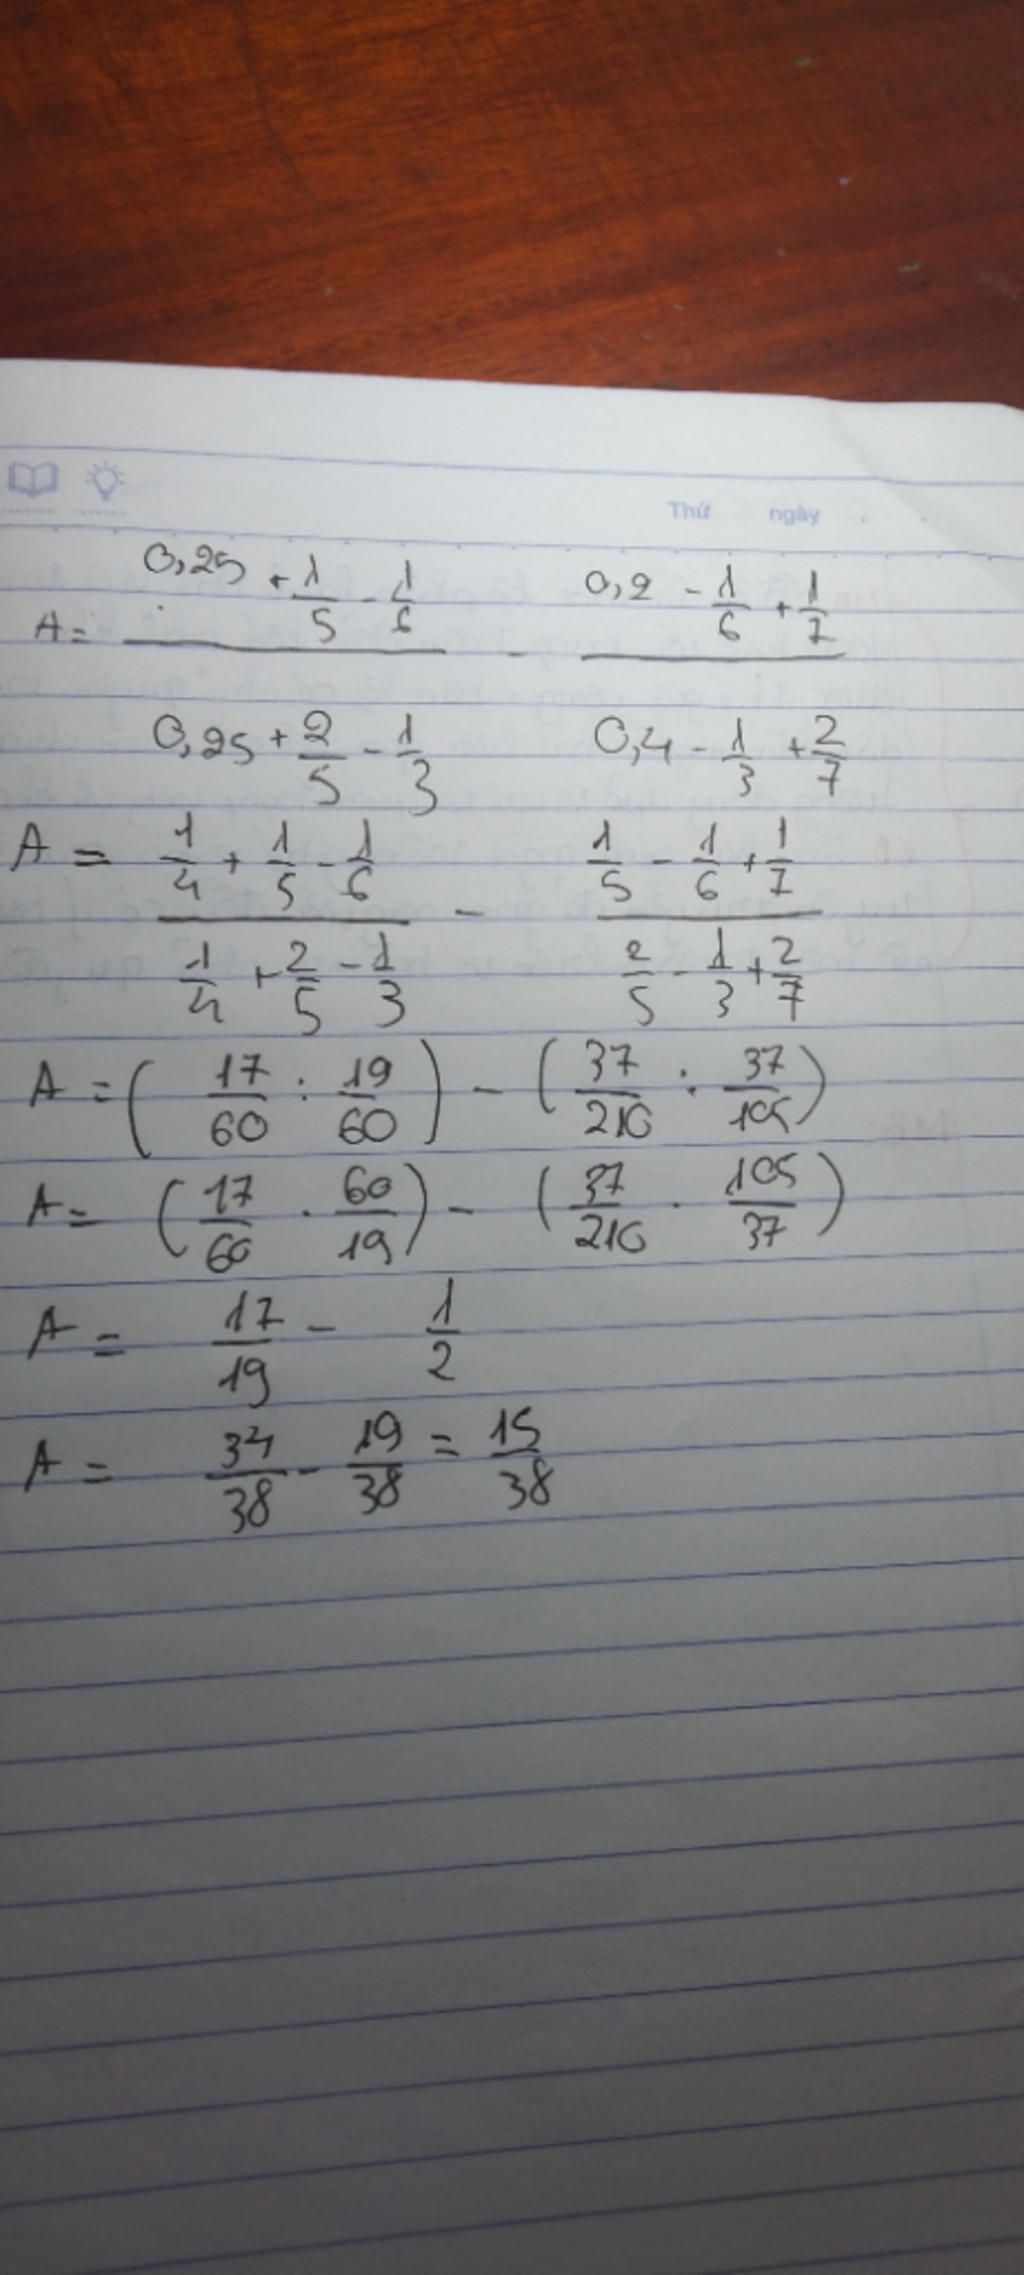 Thứ ngày
A = (0,25 + 1/5 - 1/6)/(0,25 + 2/5 - 1/3) - (0,2 - 1/6 + 1/7)/(0,4 - 1/3 + 2/7)
A = (1/4 + 1/5 - 1/6)/(1/4 + 2/5 - 1/3) - (1/5 - 1/6 + 1/7)/(2/5 - 1/3 + 2/7)
A = (17/60 : 19/60) - (37/210 : 37/105)
A = (17/60 . 60/19) - (37/210 . 105/37)
A = 17/19 - 1/2
A = 34/38 - 19/38 = 15/38